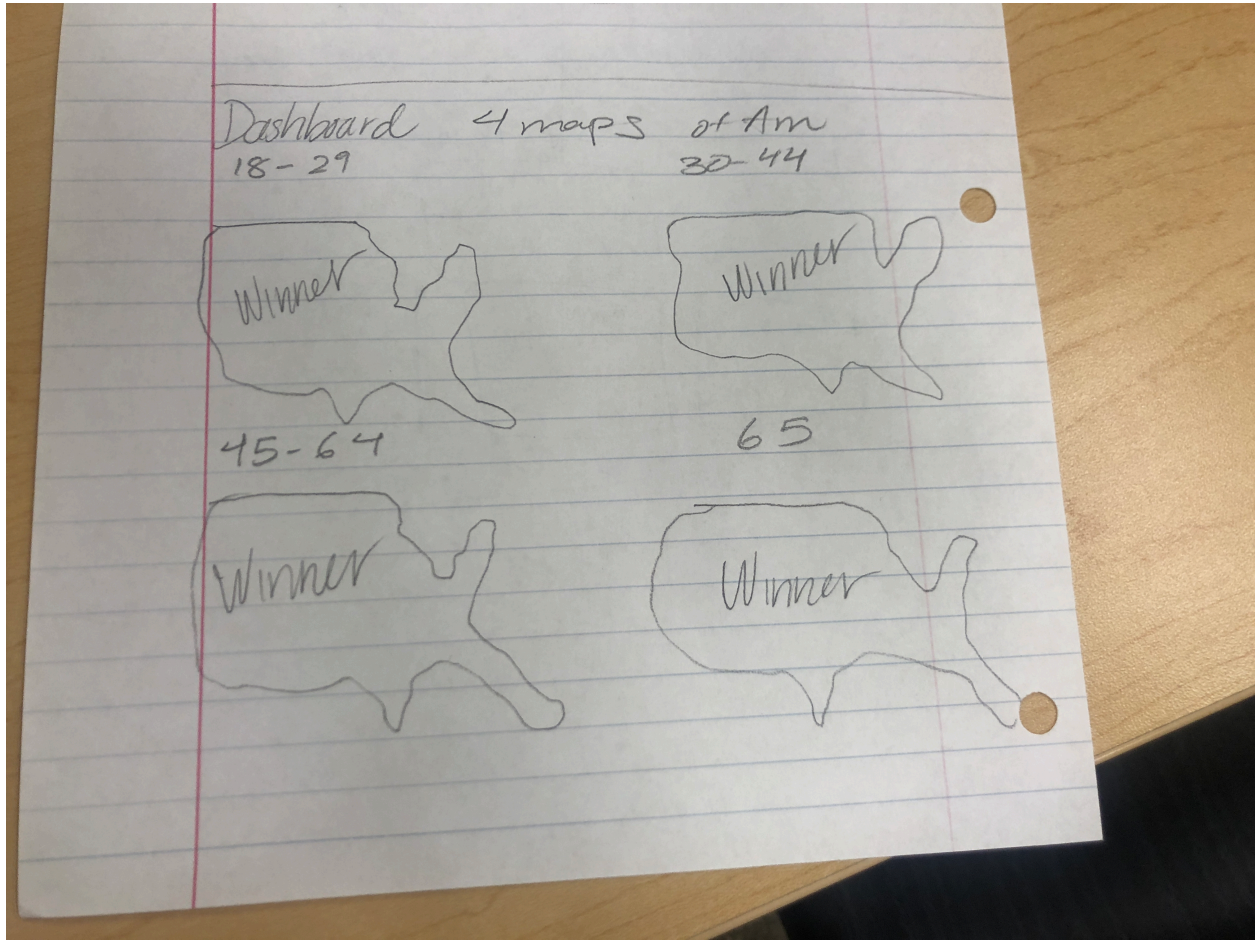 Dashboard 4 maps of Am
18-29 30-44
Winner Winner
45-64 65
Winner Winner